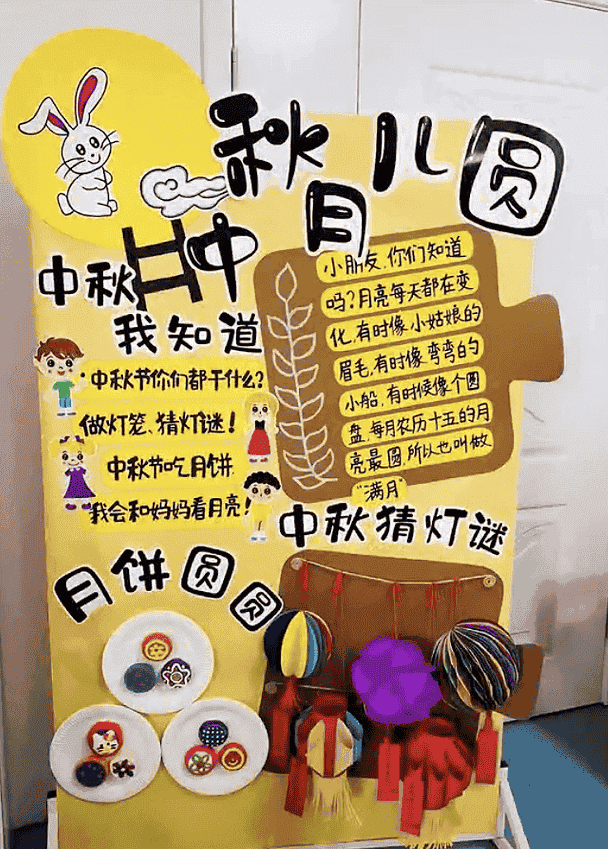 中秋月儿圆
中秋
我知道
中秋节你们都干什么?
做灯笼、猜灯谜!
中秋节吃月饼
我会和妈妈看月亮!
小朋友,你们知道
吗?月亮每天都在变
化,有时像小姑娘的
眉毛,有时像弯弯的
小船,有时候像个圆
盘,每月农历十五的月
亮最圆,所以也叫做
“满月”
中秋猜灯谜
月饼圆圆